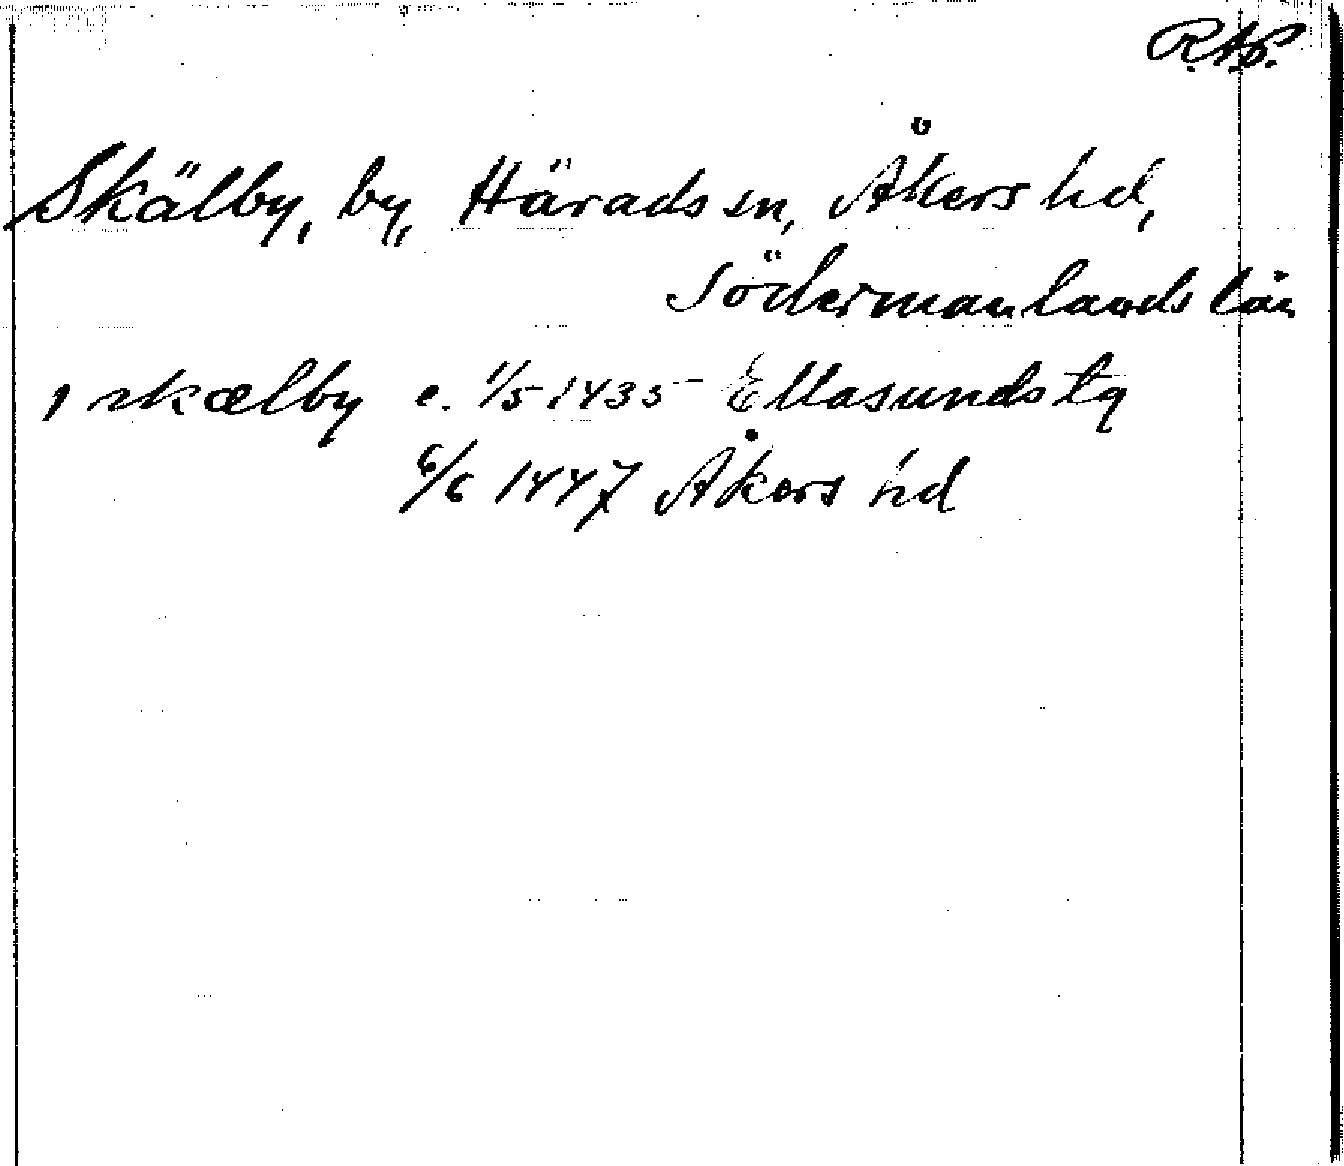 R.A.P.
Skälby, by, Härads sn, Åkers hd,
Södermanlands län
i skælby e. 1/5 1435 Ellasunds tg
6/6 1447 Åkers hd